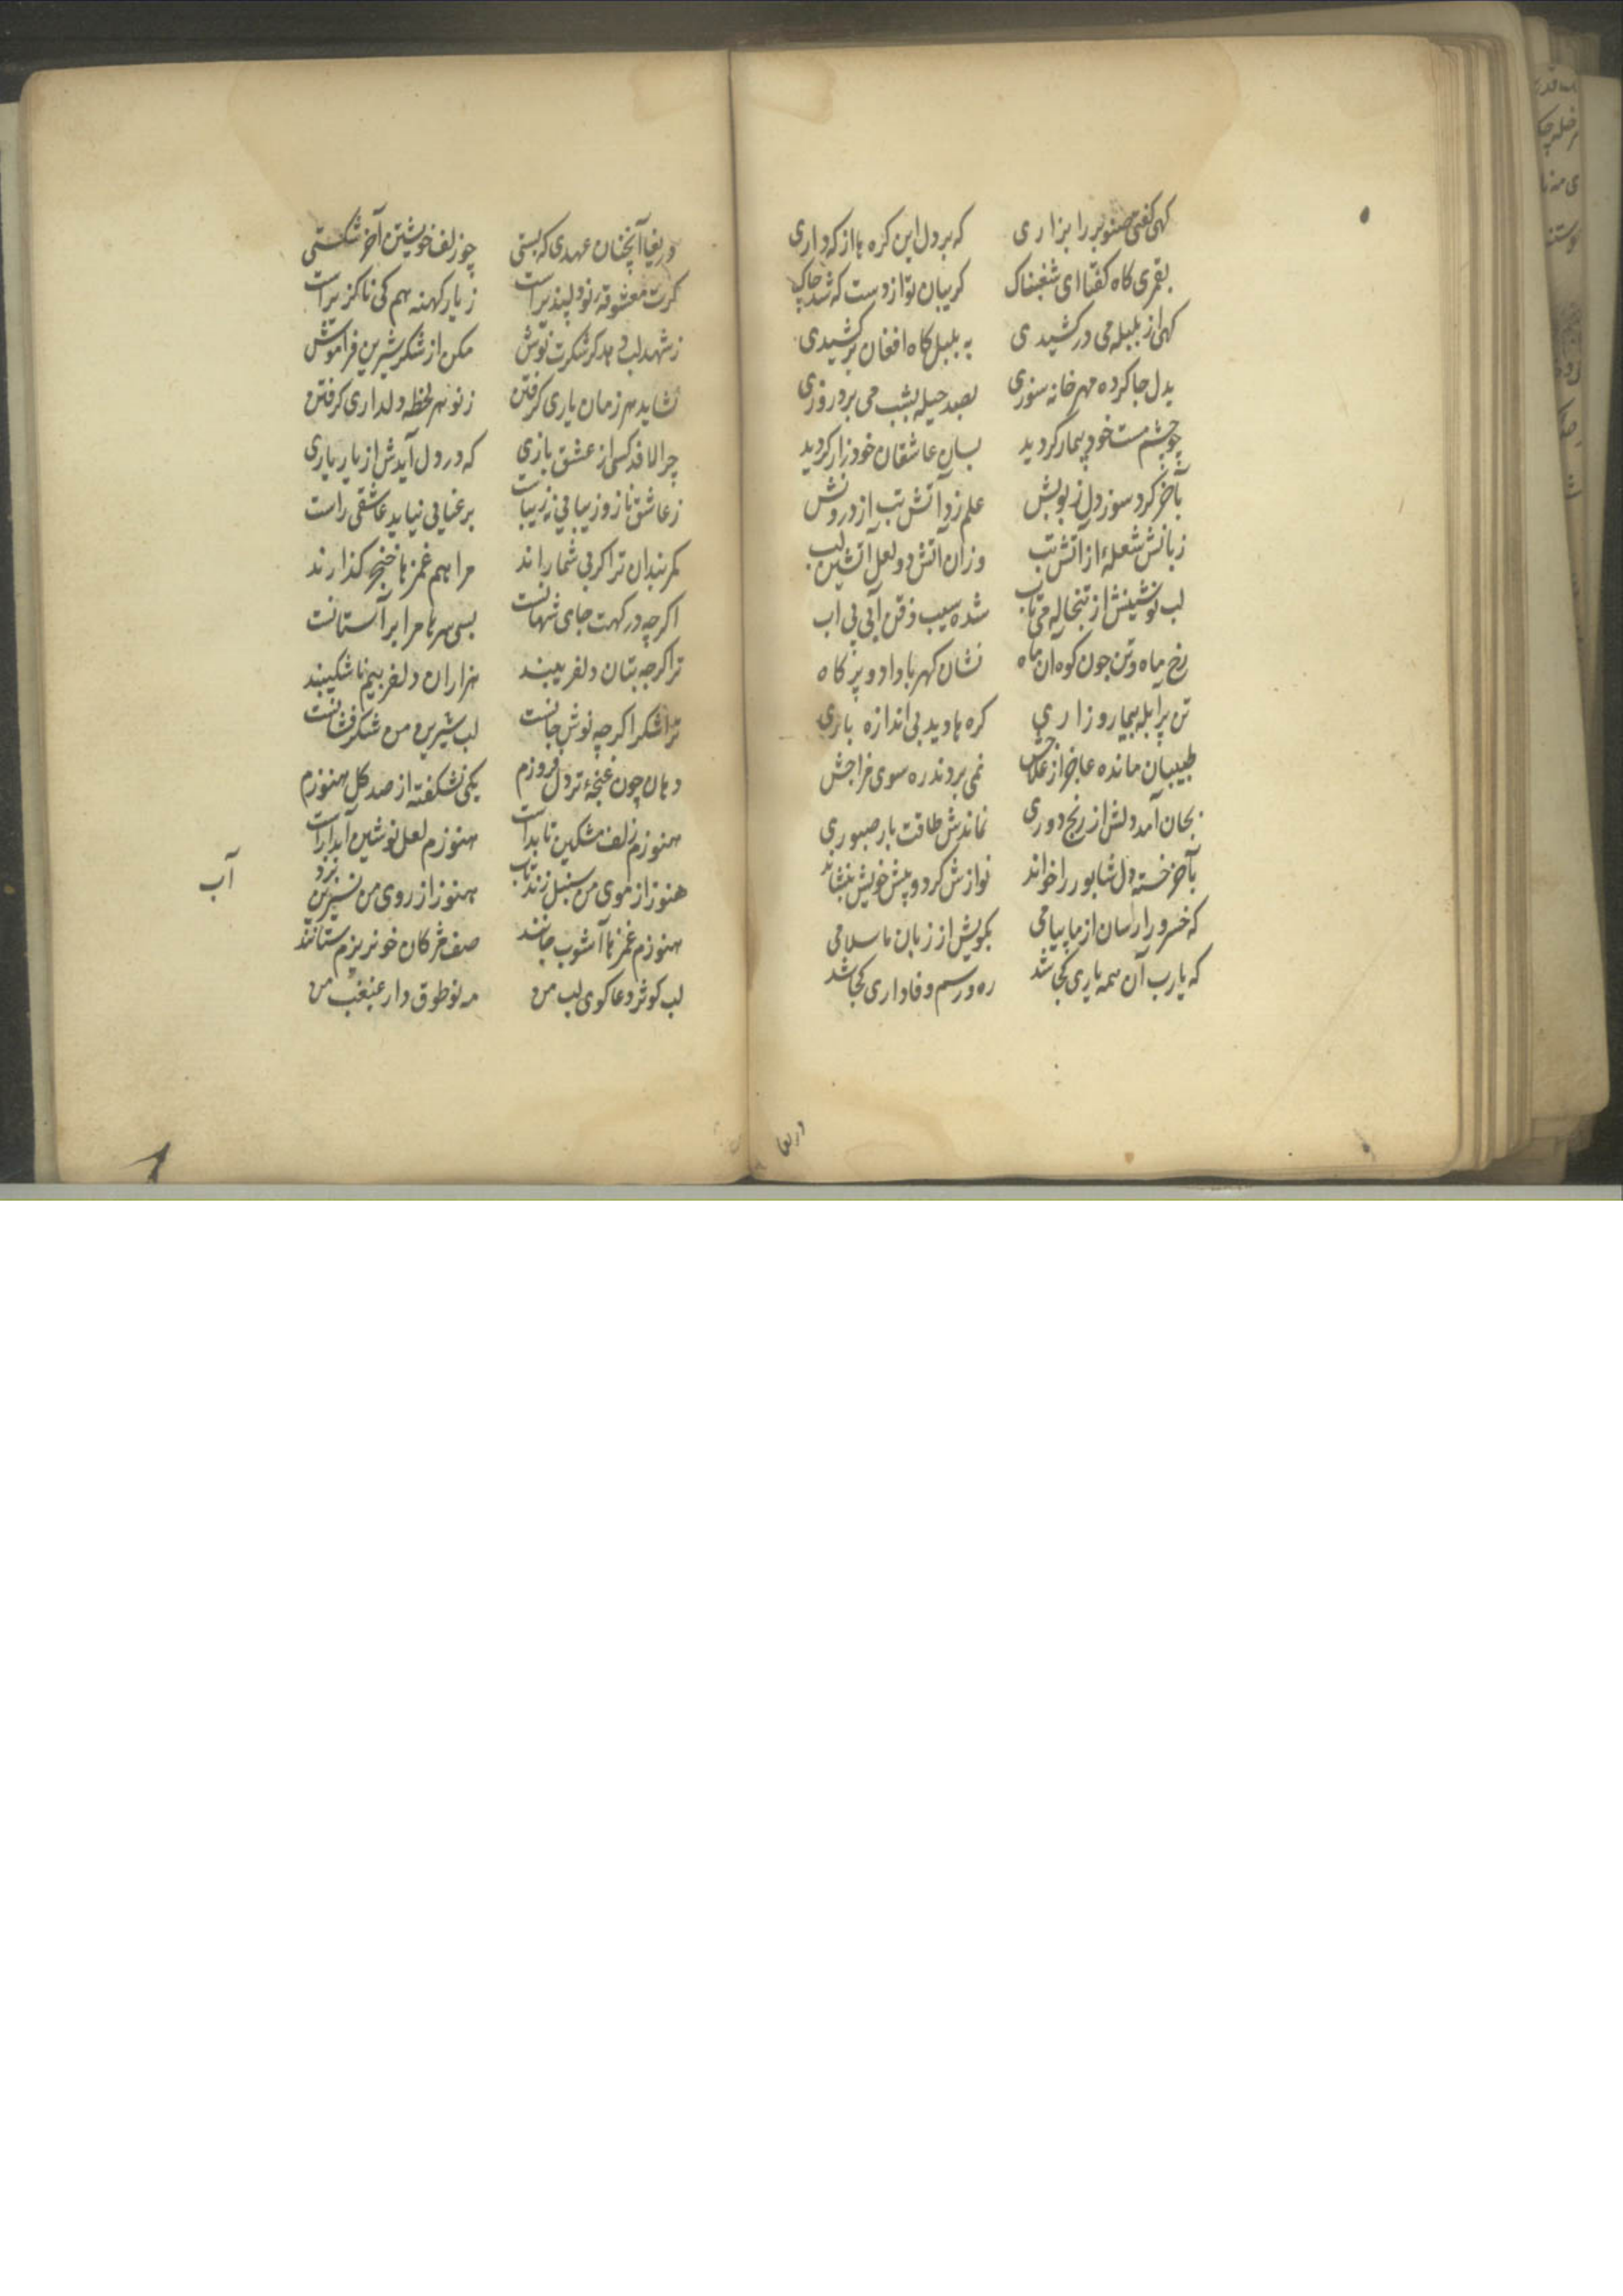 کهی کفتی صنوبر را بزاری که بر دل این کره ها از که داری
بقمری کاه کفتا ای شغبناک کریبان تو از دست که شد چاک
کهی از بلبله می در کشیدی به بلبل کاه افغان بر کشیدی
بدل جا کرده مهر خانه سوزی بصد حیله بشب می برد روزی
چو چشم مست خود بیمار کردید بسان عاشقان خود زار کردید
بآخر کرد سوز دل زبونش علم زد آتش تب از درونش
زبانش شعلهٔ از آتش تب وزان آتش دو لعل آتشین لب
لب نوشینش از تبخاله می تاب شده سیب ذقن آبی بی اب
رخ ماه و تن چون کوه ان ماه نشان کهربا داد و پر کاه
تن پر آبله بیمار و زاری کره ها دید بی اندازه باری
طبیبان مانده عاجز از علاجش نمی بردند ره سوی مزاجش
بجان آمد دلش از رنج دوری نماندش طاقت بار صبوری
بآخر خسته دل شاپور را خواند نوازش کرد و پیش خویش بنشاند
که خسرو را رسان از ما پیامی بکویش از زبان ما سلامی
که یارب آن همه یاری کجا شد ره و رسم وفاداری کجا شد
دریغا
دریغا آنچنان عهدی که بستی چو زلف خویشتن آخر شکستی
کرت معشوقه نو دلپذیر است ز یار کهنه هم کی ناکزیر است
ز شهد لب دهد کر شکرت نوش مکن از شکر شیرین فراموش
نشاید هر زمان یاری کرفتن ز نو هر لحظه دلداری کرفتن
چرا لافد کسی از عشق بازی که در دل آیدش از یار یاری
ز عاشق ناز و زیبایی نه زیباست برعنایی نیاید عاشقی راست
کمربندان ترا کر بی شمارا ند مرا هم غمزها خنجر کذارند
اکرچه درکهت جای شهانست بسی سرها مرا بر آستانست
ترا کرچه بتان دلفریبند هزاران دلفریبم ناشکیبند
ترا شکر اکرچه نوش جانست لب شیرین من شکرفشانست
دهان چون غنچهٔ تر دل فروزم یکی نشکفته از صد کل هنوزم
هنوزم زلف مشکین تابدار است هنوزم لعل نوشین آبدار است
هنوز از موی من سنبل زند تاب هنوز از روی من نسرین برد
آب
هنوزم غمزها آشوب جانند صف مژکان خونریزم ستانند
لب کوثر دعاکوی لب من مه نو طوق دار غبغب من